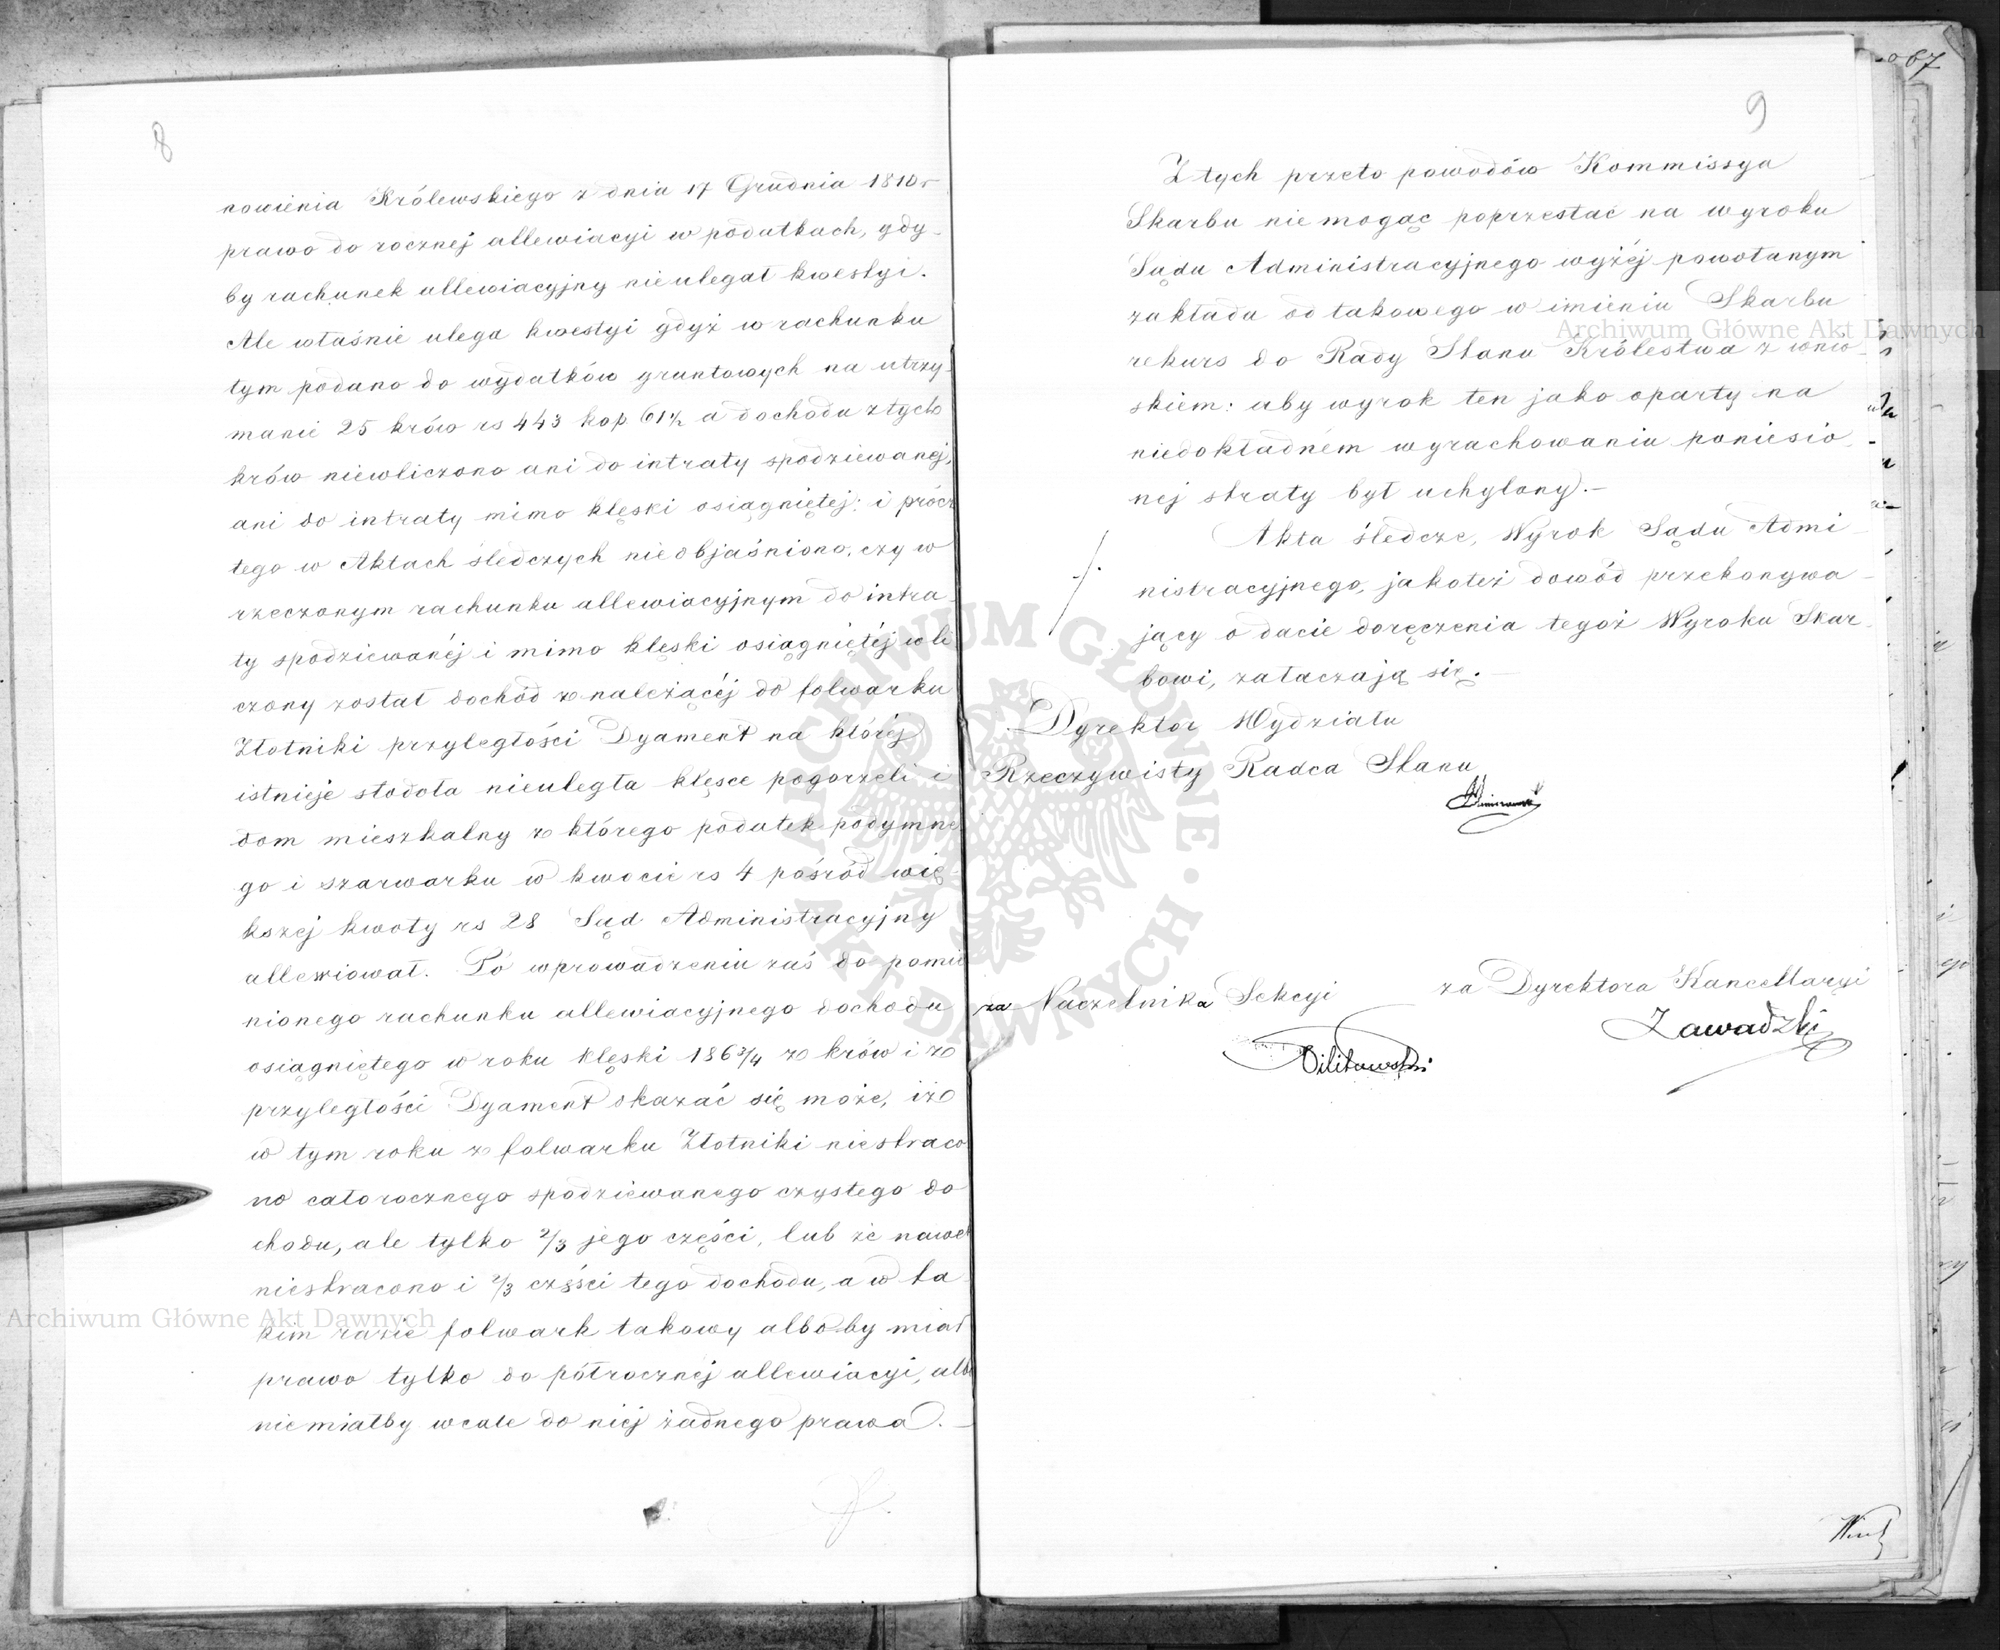 8
nowienia Królewskiego z dnia 17 Grudnia 1810 r
prawo do rocznej allewiacyi w podatkach, gdy-
by rachunek allewiacyjny nieulegał kwestyi.
Ale właśnie ulega kwestyi gdyż w rachunku
tym podano do wydatków gruntowych na utrzy-
manie 25 krów rs 443 kop 61½ a dochodu z tych
krów niewliczono ani do intraty spodziewanej,
ani do intraty mimo klęski osiągniętej; i prócz
tego w Aktach śledczych nieobjaśniono, czy w
rzeczonym rachunku allewiacyjnym do intra-
ty spodziewanéj i mimo klęski osiągniętéj wli
czony został dochód z należącéj do folwarku
Złotniki przyległości Dyament na któréj
istnieje stodoła nieuległa klęsce pogorzeli i
dom mieszkalny z którego podatek podymne
go i szarwarku w kwocie rs 4 pośród wię-
kszej kwoty rs 28 Sąd Administracyjny
allewiował. Po wprowadzeniu zaś do pomie
nionego rachunku allewiacyjnego dochodu
osiągniętego w roku klęski 186¾ z krów i z
przyległości Dyament okazać się może, iż
w tym roku z folwarku Złotniki niestraco
no całorocznego spodziewanego czystego do
chodu, ale tylko 2/3 jego części, lub że nawet
niestracono i 2/3 części tego dochodu, a w ta-
kim razie folwark takowy albo by miał
prawo tylko do półrocznéj allewiacyi, albo
niemiałby wcale do niéj żadnego prawa. —
9
Z tych przeto powodów Kommissya
Skarbu niemogąc poprzestać na wyroku
Sądu Administracyjnego wyżéj powołanym
zakłada od takowego w imieniu Skarbu
rekurs do Rady Stanu Królestwa z wnio-
skiem: aby wyrok ten jako oparty na
niedokładném wyrachowaniu poniesio
nej straty był uchylony. —
Akta śledcze, Wyrok Sądu Admi-
nistracyjnego, jakoteż dowód przekonywa-
jący o dacie doręczenia tegoż Wyroku Skar-
bowi, załączają się. —
Dyrektor Wydziału
Rzeczywisty Radca Stanu
za Naczelnika Sekcyi
za Dyrektora Kancellaryi
Zawadzki
67
Archiwum Główne Akt Dawnych
Archiwum Główne Akt Dawnych
ARCHIWUM GŁÓWNE AKT DAWNYCH